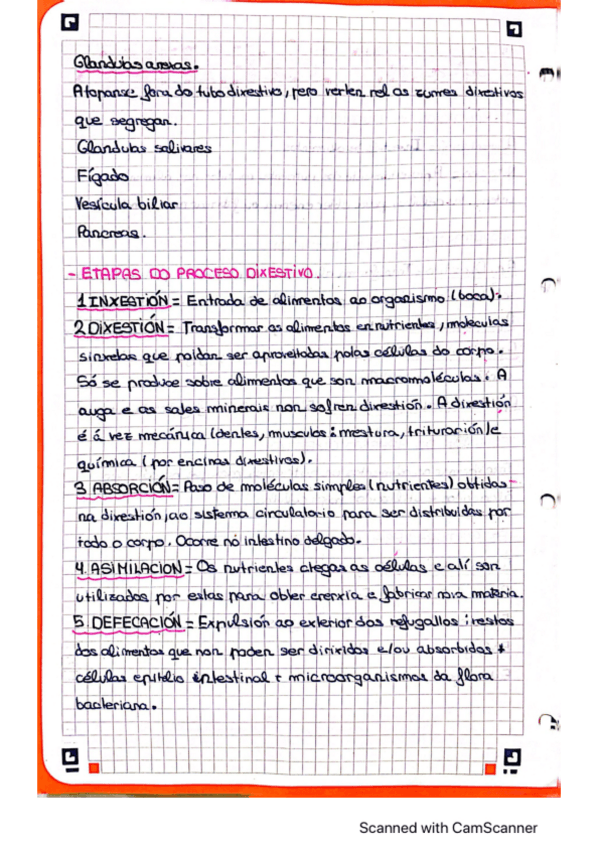 Glandulas anexas.
Atopanse fora do tubo dixestivo, pero verten nel os zumes dixestivos
que segregan.
Glandulas salivares
Fígado
Vesícula biliar
Pancreas.
- ETAPAS DO PROCESO DIXESTIVO.
1 INXESTIÓN = Entrada de alimentos ao organismo (boca).
2 DIXESTIÓN = Transformar os alimentos en nutrientes, moleculas
sinxelas que poidan ser aproveitadas polas células do corpo.
Só se produce sobre alimentos que son macromoléculas. A
auga e as sales minerais non sofren dixestión. A dixestión
é á vez mecánica (dentes, musculos: mestura, trituración) e
química (por encimas dixestivos).
3 ABSORCIÓN = Paso de moléculas simples (nutrientes) obtidas
na dixestión, ao sistema circulatorio para ser distribuidas por
todo o corpo. Ocorre no intestino delgado.
4. ASIMILACION = Os nutrientes chegan as células e alí son
utilizados por estas para obter enerxía e fabricar nova materia.
5 DEFECACIÓN = Expulsión ao exterior dos refugallos: restos
dos alimentos que non poden ser dixiridos e/ou absorbidos +
células epitelio intestinal + microorganismos da flora
bacteriana.
Scanned with CamScanner